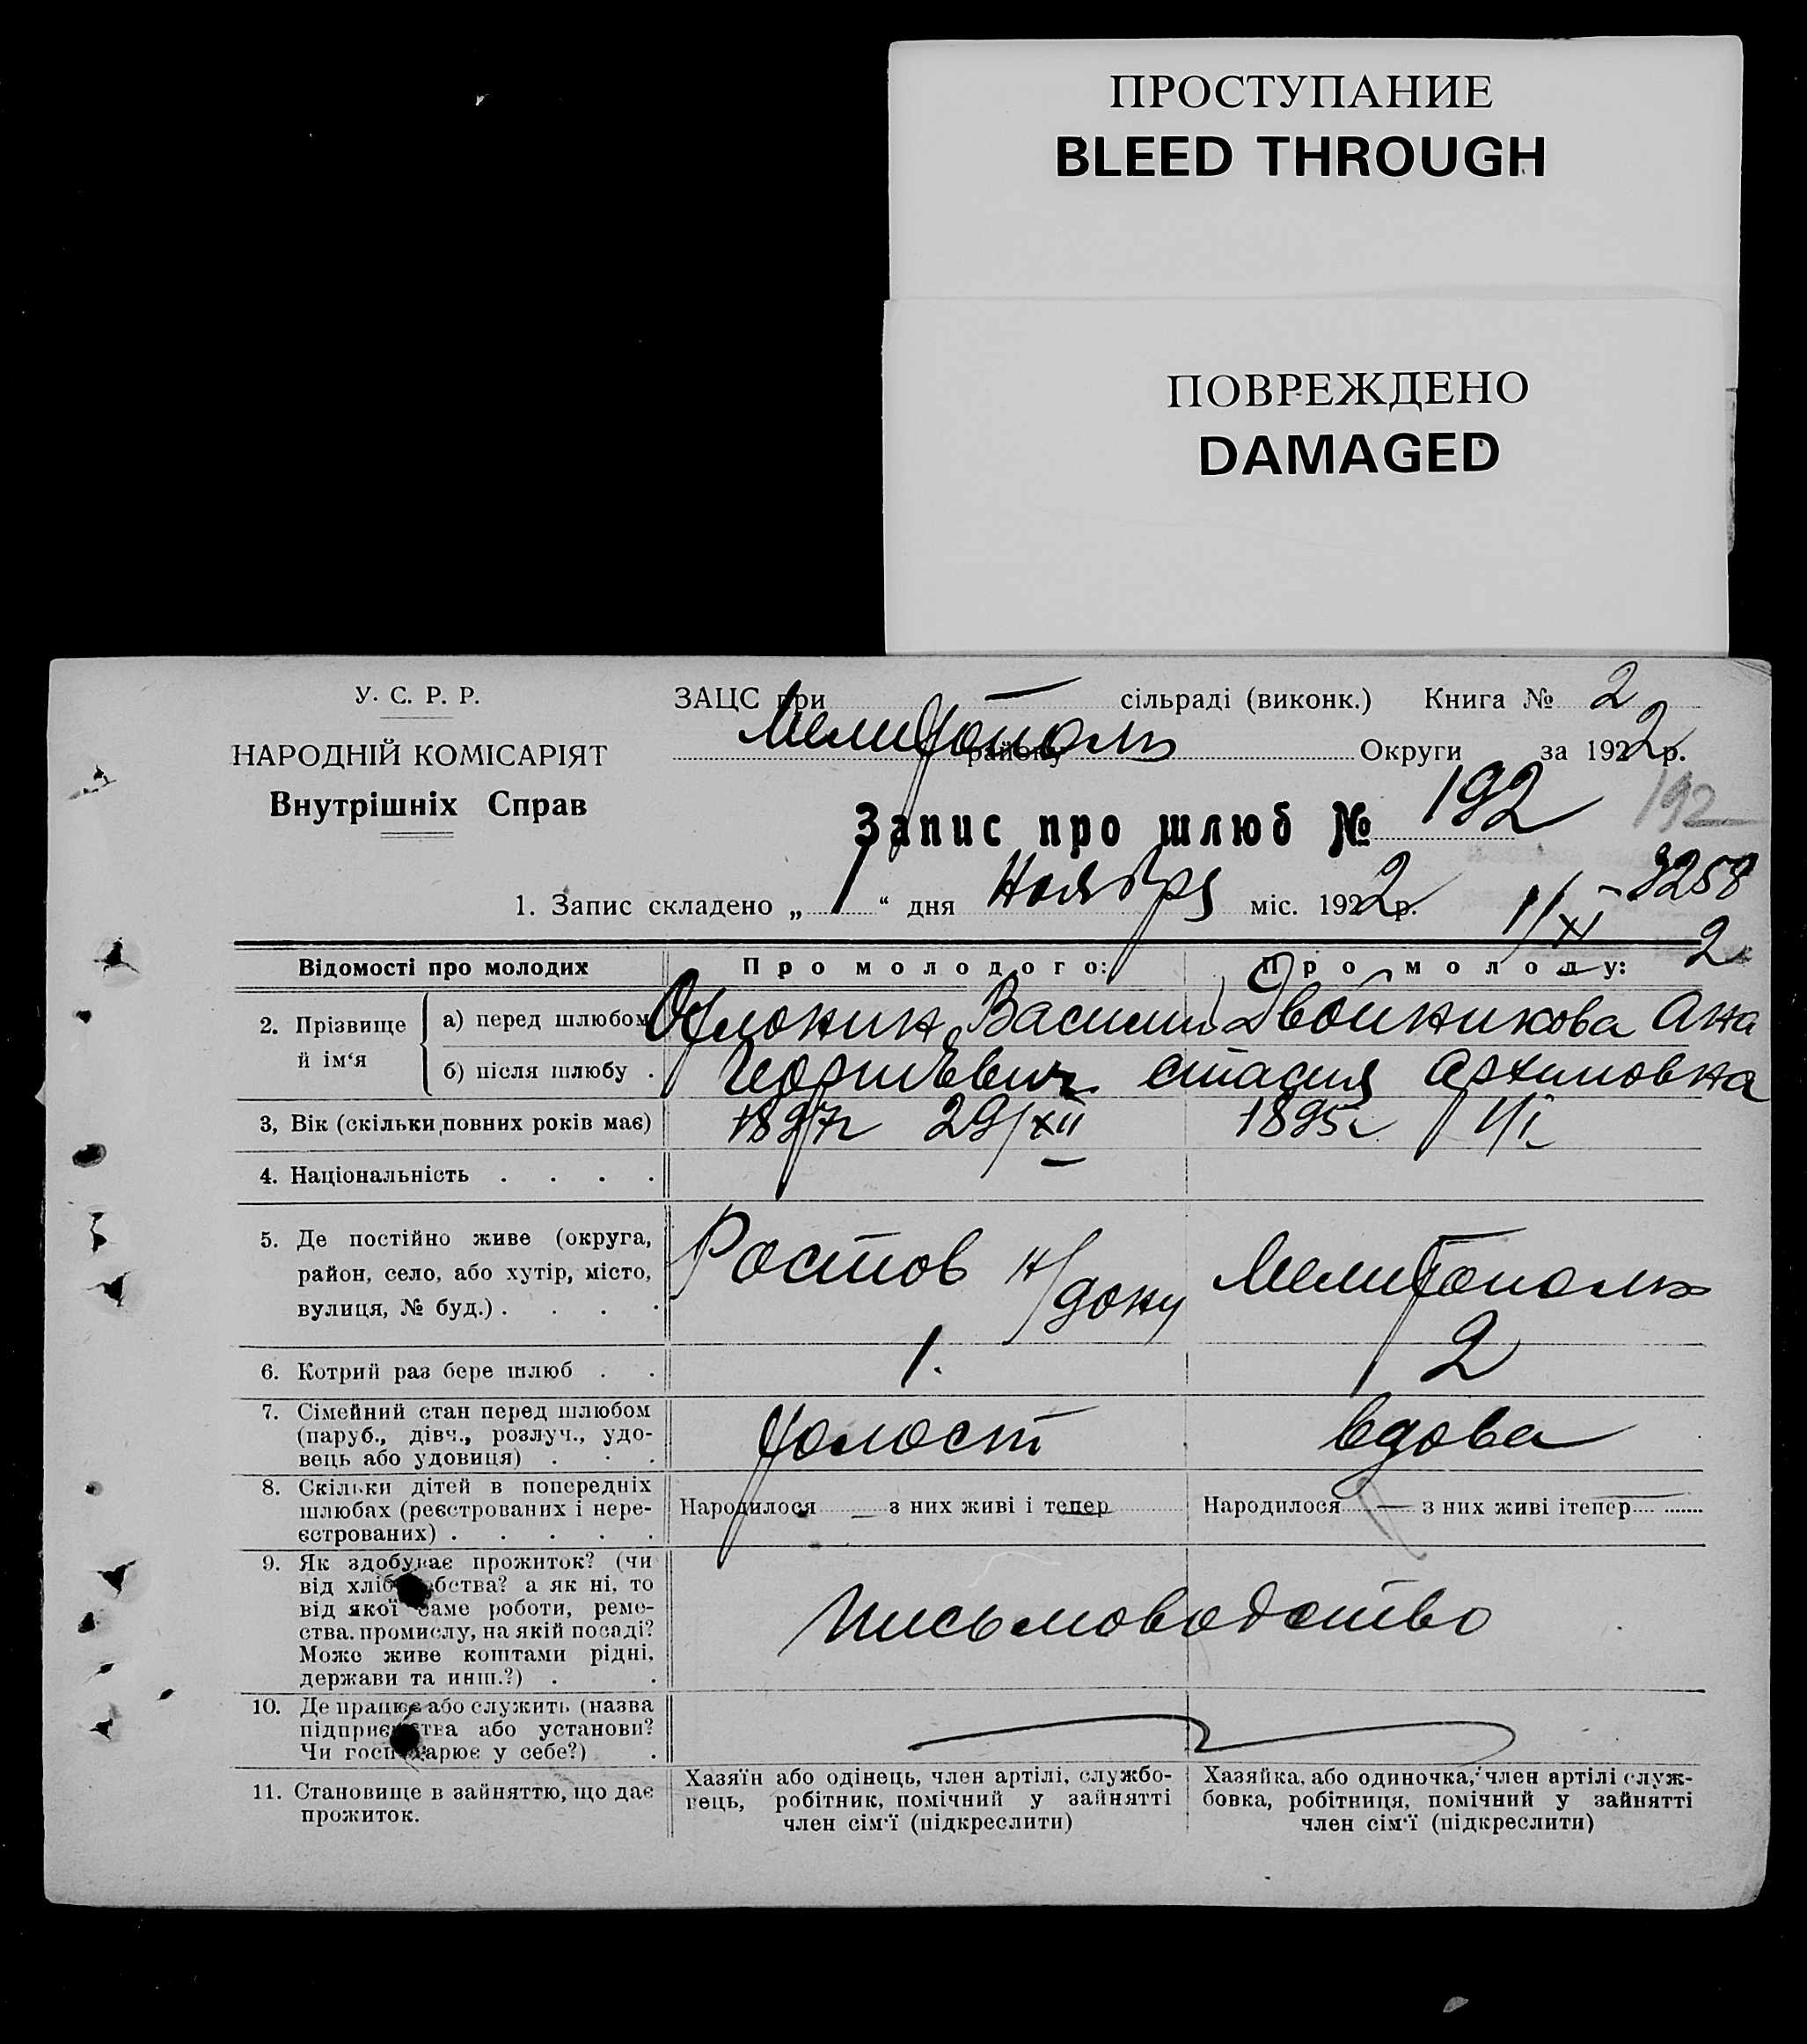 ПРОСТУПАНИЕ
BLEED THROUGH
ПОВРЕЖДЕНО
DAMAGED
У. С. Р. Р.
НАРОДНІЙ КОМІСАРІЯТ
Внутрішніх Справ
ЗАЦС при — сільраді (виконк.) Книга № 2
Мелитополь району Округи за 1922 р.
Запис про шлюб № 192
192
1. Запис складено „ 1 “ дня Ноября міс. 1922 р.
1/XI - 3258
2
Відомості про молодих
Про молодого:
Про молоду:
2. Прізвище й ім‘я
а) перед шлюбом
б) після шлюбу .
Василий
Двойникова Ана
стасия Архиповна
3, Вік (скільки повних років має)
1897г 29/XII
1895г 1/I
4. Національність . . . .
5. Де постійно живе (округа,
район, село, або хутір, місто,
вулиця, № буд.) . . . .
Ростов н/дону
Мелитополь
6. Котрий раз бере шлюб . .
1.
2
7. Сімейний стан перед шлюбом
(паруб., дівч., розлуч., удо-
вець або удовиця) . . .
Холост
вдова
8. Скільки дітей в попередніх
шлюбах (реєстрованих і нере-
єстрованих) . . . . .
Народилося — з них живі і тепер
Народилося — з них живі ітепер
9. Як здобуває прожиток? (чи
від хліборобства? а як ні, то
від якої саме роботи, реме-
ства, промислу, на якій посаді?
Може живе коштами рідні,
держави та инш.?) . .
письмоводство
10. Де працює або служить (назва
підприємства або установи?
Чи господарює у себе?) .
11. Становище в зайняттю, що дає
прожиток.
Хазяїн або одінець, член артілі, службо-
вець, робітник, помічний у зайнятті
член сім‘ї (підкреслити)
Хазяйка, або одиночка, член артілі служ-
бовка, робітниця, помічний у зайнятті
член сім‘ї (підкреслити)